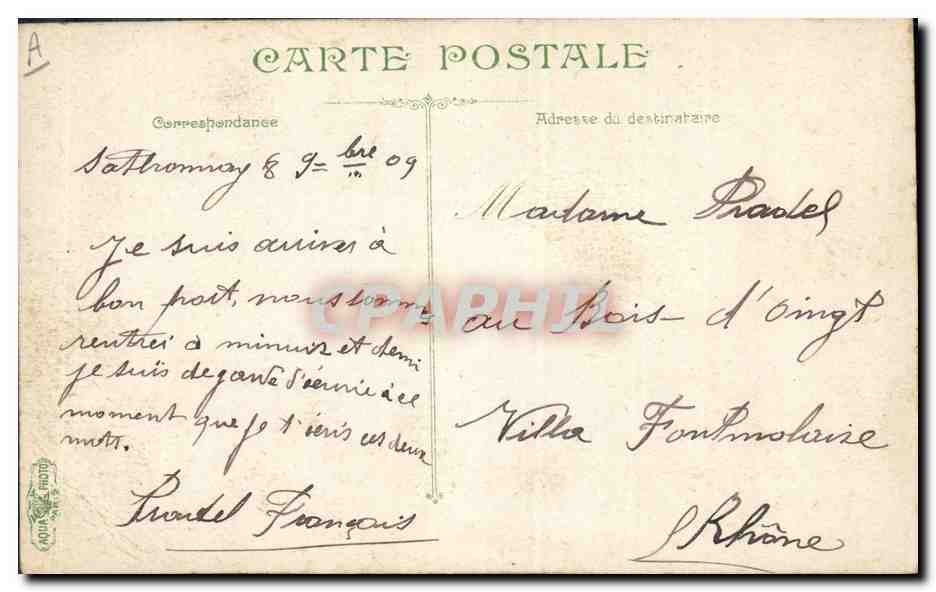 A
CARTE POSTALE
Correspondance
Adresse du destinataire
Sathonnay 8 9bre 09
Je suis arriver à
bon port, nous somm
es
rentrés à minuit et demi
je suis de garde d'écurie à ce
moment que je t'écris ces deux
mots.
Pradel Français
Madame Pradel
au Bois d'Oingt
Villa Fontmolaise
Rhône
CPAPHIL
AQUA PHOTO
PARIS